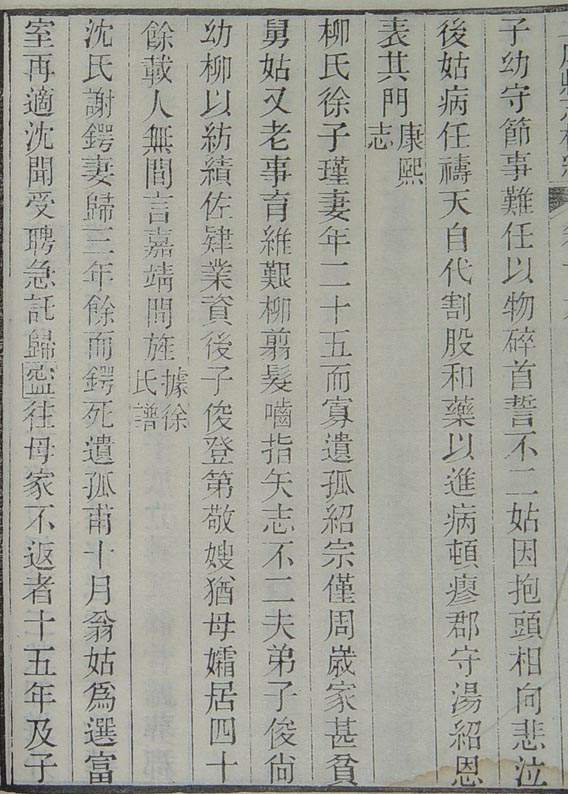 子幼守節事難任以物碎首誓不二姑因抱頭相向悲泣
後姑病任禱天自代割股和藥以進病頓瘳郡守湯紹恩
表其門康熙志
柳氏徐子瑾妻年二十五而寡遺孤紹宗僅周歲家甚貧
舅姑又老事育維艱柳翦髮嚙指矢志不二夫弟子俊尙
幼柳以紡績佐肄業資後子俊登第敬嫂猶母孀居四十
餘載人無間言嘉靖間旌據徐氏譜
沈氏謝鍔妻歸三年餘而鍔死遺孤甫十月翁姑爲選富
室再適沈聞受聘急託歸寍往母家不返者十五年及子